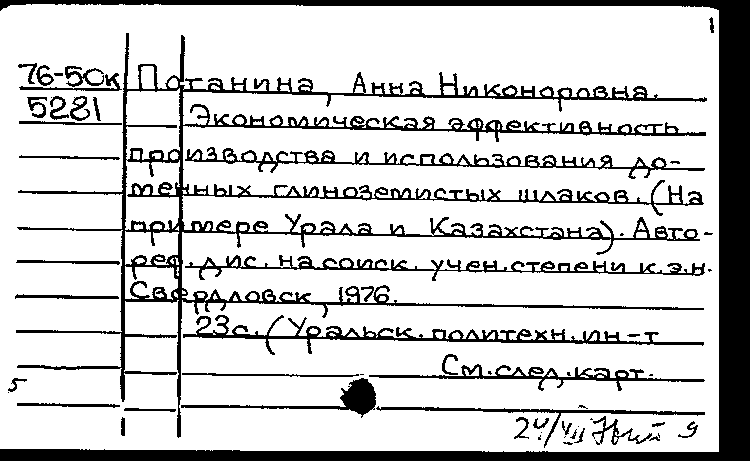 1
76-50к Потанина, Анна Никоноровна.
5281 Экономическая эффективность
производства и использования до-
менных глиноземистых шлаков. (На
примере Урала и Казахстана). Авто-
реф. дис. на соиск. учен. степени к.э.н.
Свердловск, 1976.
23с. (Уральск. политехн. ин-т
См. след. карт.
5
24/VIII 9